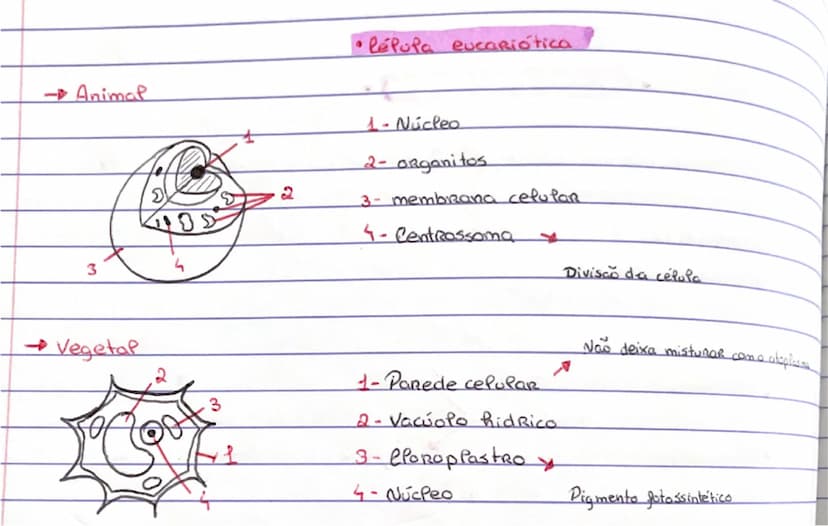 • Célula eucariótica
→ Animal
1 - Núcleo
2 - organitos
3 - membrana celular
4 - Centrossoma ↘
Divisão da célula
1
2
3
4
→ Vegetal
Não deixa misturar como
1 - Parede celular ↗
2 - Vacúolo hídrico
3 - Cloroplastro ↘
4 - Núcleo
Pigmento fotossintético
2
3
1
4